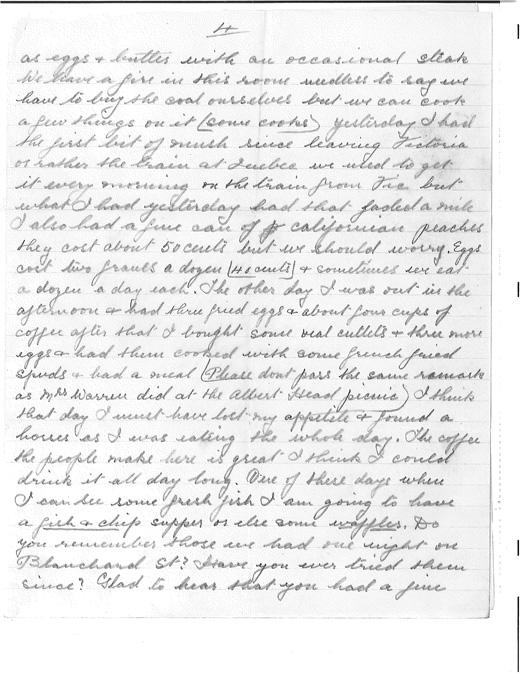 4
as eggs & butter with an occasional steak
We have a fire in this room needless to say we
have to buy the coal ourselves but we can cook
a few things on it (some cooks) yesterday I had
the first bit of mush since leaving Victoria
or rather the train at Quebec we used to get
it every morning on the train from Vic but
what I had yesterday had that faded a mile
I also had a fine can of californian peaches
they cost about 50 cents but we should worry. Eggs
cost two franks a dozen (40 cents) & sometimes we eat
a dozen a day each. The other day I was out in the
afternoon & had three fried eggs & about four cups of
coffee after that I bought some veal cutlets & three more
eggs & had them cooked with some french fried
spuds & had a meal (Please dont pass the same remark
as Mrs Warren did at the Albert Head picnic) I think
that day I must have lost my appetite & found a
horses as I was eating the whole day. The coffee
the people make here is great I think I could
drink it all day long. One of these days when
I can see some fresh fish I am going to have
a fish & chip supper or else some waffles. Do
you remember those we had one night on
Blanchard St? Have you ever tried them
since? Glad to hear that you had a fine